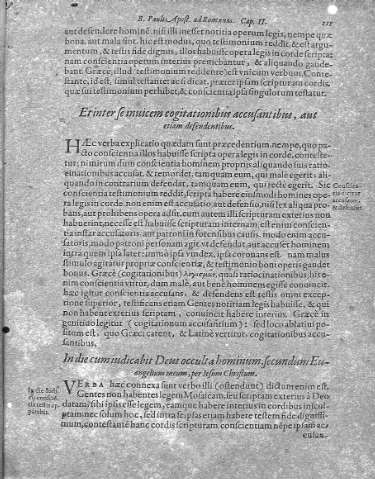 B. Pauli Apost. ad Romanos. Cap. II. 111
aut defendere hominé. nisi illi inesset notitia operum legis, nempe quæ
bona, aut mala sint. hic est modus, quo testimonium reddit. & est argu-
mentum, & testis fide dignus, illos habuisse opera legis in corde scripta:
nam conscientia operum interius premebantur, & aliquando gaude-
bant. Græcè, illud testimonium reddente est vnicum verbum, Conte-
stante, id est, simul testante: acsi dicat, præter ipsam scripturam cordis,
quæ sui testimonium perhibet, & conscientia ipsa singulorum testatur.
Et inter se inuicem cogitationibus accusantibus, aut
etiam defendentibus.
HÆc verba explicatio quædam sunt præcedentium. nempe, quo pa-
cto conscientia illos habuisse scripta opera legis in corde, conteste-
tur: nimirum dum conscientia hominem proprius aliquando suis ratio-
cinationibus accusat, & remordet, tamquam eum, qui malè egerit: ali-
quando in contrarium defendat, tamquam eum, qui rectè egerit. Sic
conscientia testimonium reddit, scripta habere eiusmodi homines ope-
ra legis in corde. non enim est accusatio, aut defensio, nisi lex aliqua pro-
bans, aut prohibens opera adsit. cum autem illi scripturam exterius non
habuerint, necesse est habuisse scripturam internam. est enim conscien-
tia instar accusatoris, aut patroni in forensibus causis. modo enim accu-
satoris, modo patroni personam agit, vt defendat, aut accuset hominem
intra quem ipsa latet: immo ipsa vindex, ipsa coronans est. nam malus
stimulo agitatur propriæ conscientiæ, & testimonio boni operis gaudet
bonus. Græcè (cogitationibus) λογισμῶν, quasi ratiocinationibus. his o-
nim conscientia vtitur, dum malè, aut benè hominem egisse conuincit.
hæc igitur conscientia accusans, & defendens est testis omni exceptio-
ne superior, testificans etiam Gentes notitiam legis habuisse, & qui
non habent exterius scriptam, conuincit habere interius. Græcè in
genitiuo legitur (cogitationum accusantium): sed loco ablatiui po-
situm est, quo Græci carent, & Latinè vertitur, cogitationibus accu-
santibus.
In die cum iudicabit Deus occulta hominum, secundum Eu-
angelium meum, per Iesum Christum.
VERBA hæc connexa sunt verbo illi (ostendunt) dictum enim est,
Gentes non habentes legem Mosaicam, seu scriptam exterius à Deo
datam, sibi ipsis esse legem, eamque habere interius in cordibus inscul-
ptam. nec solum hoc, sed intra se ipsas etiam habere testem fide dignissi-
mum, contestante hanc cordis scripturam conscientiam nempe ipsam ac-
cusan-